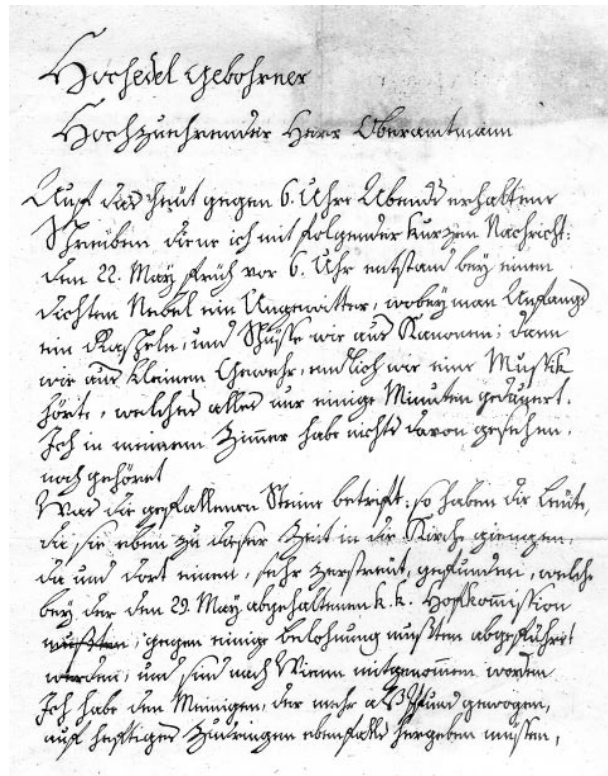 Hochedel Gebohrner
Hochzuehrender Herr Oberamtmann
Auf das heut gegen 6. Uhr Abends erhaltene
Schreiben diene ich mit folgender kurzen Nachricht:
den 22. May früh vor 6. Uhr entstand bey einem
dichten Nebel ein Ungewitter, wobey man Anfangs
ein Raßeln, und Schüsse wie aus Kanonen; dann
wie aus kleinen Gewehr, endlich wie eine Musik
hörte, welches alles nur einige Minuten gedauert.
Ich in meinem Zimmer habe nichts davon gesehen,
noch gehöret
Was die gefallenen Steine betrift: so haben die Leute,
die sie eben zu dieser Zeit in die Kirche giengen,
da und dort einen, sehr zerstreut, gefunden, welche
bey der den 29. May abgehaltenen k. k. Hofkommission
mußten, gegen einige Belohnung mußten abgeführt
werden, und sind nach Wienn mitgenommen worden
Ich habe den Meinigen, der mehr als Pfund gewogen,
auf heftiges Zudringen ebenfalls hergeben müssen,